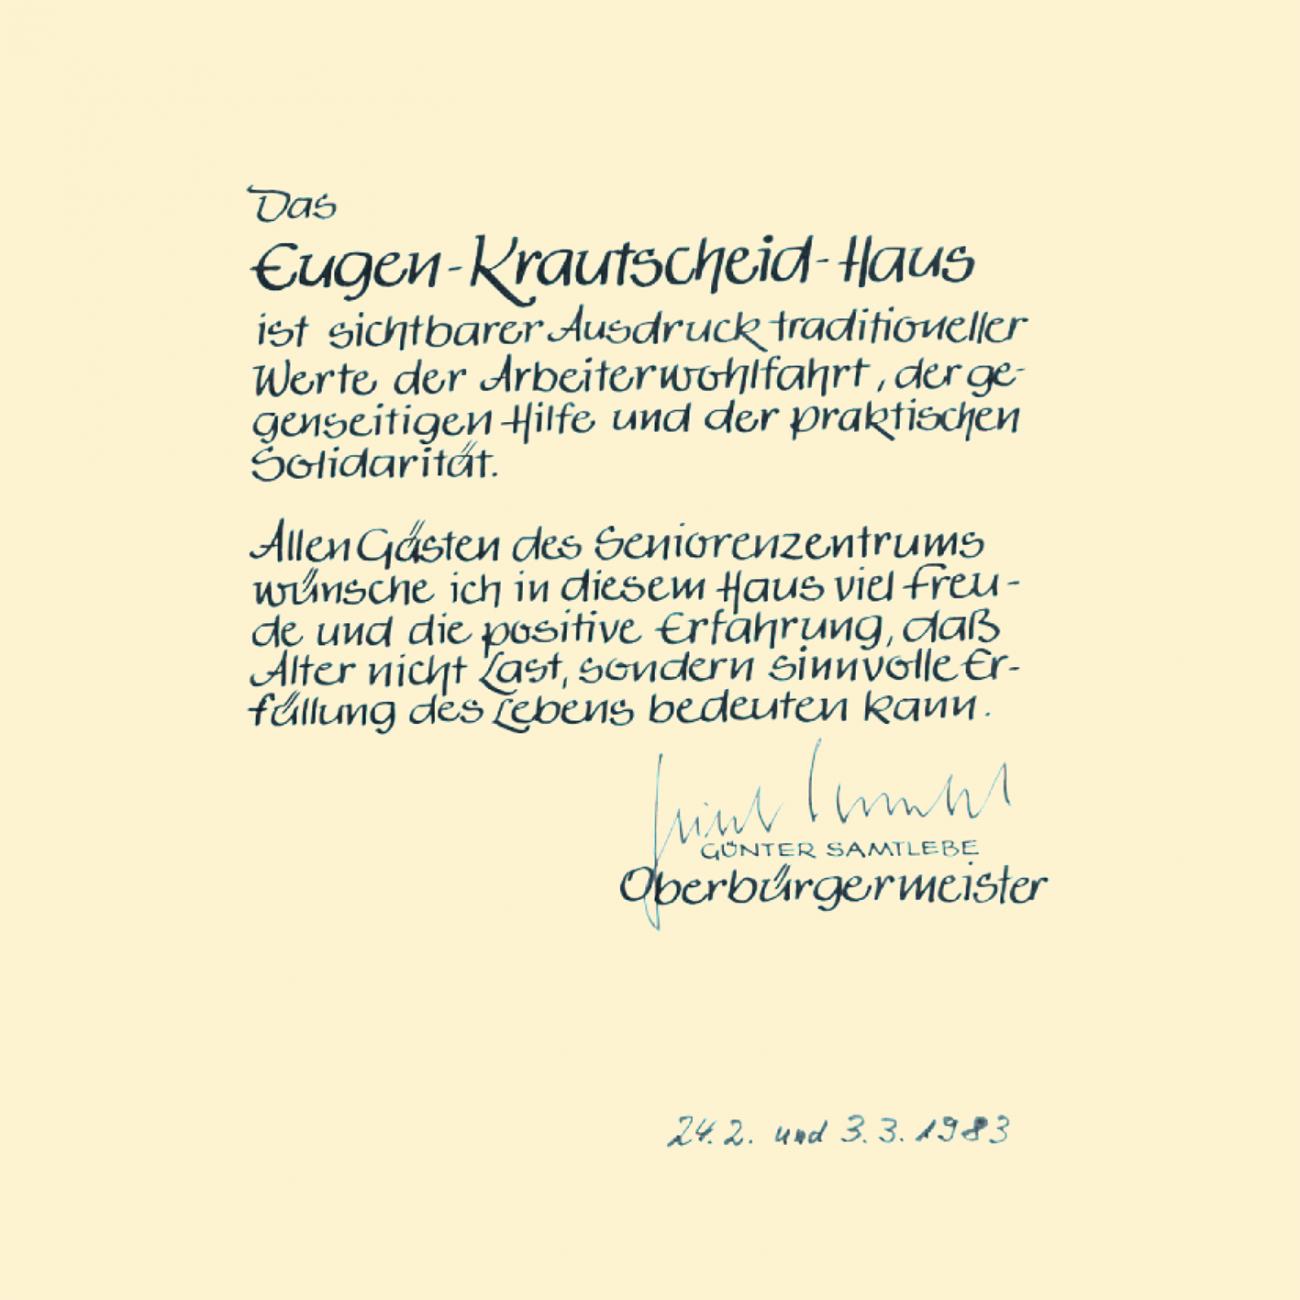 Das
Eugen-Krautscheid-Haus
ist sichtbarer Ausdruck traditioneller
Werte der Arbeiterwohlfahrt, der ge-
genseitigen Hilfe und der praktischen
Solidarität.
Allen Gästen des Seniorenzentrums
wünsche ich in diesem Haus viel Freu-
de und die positive Erfahrung, daß
Alter nicht Last, sondern sinnvolle Er-
füllung des Lebens bedeuten kann.
GÜNTER SAMTLEBE
Oberbürgermeister
24.2. und 3.3.1983